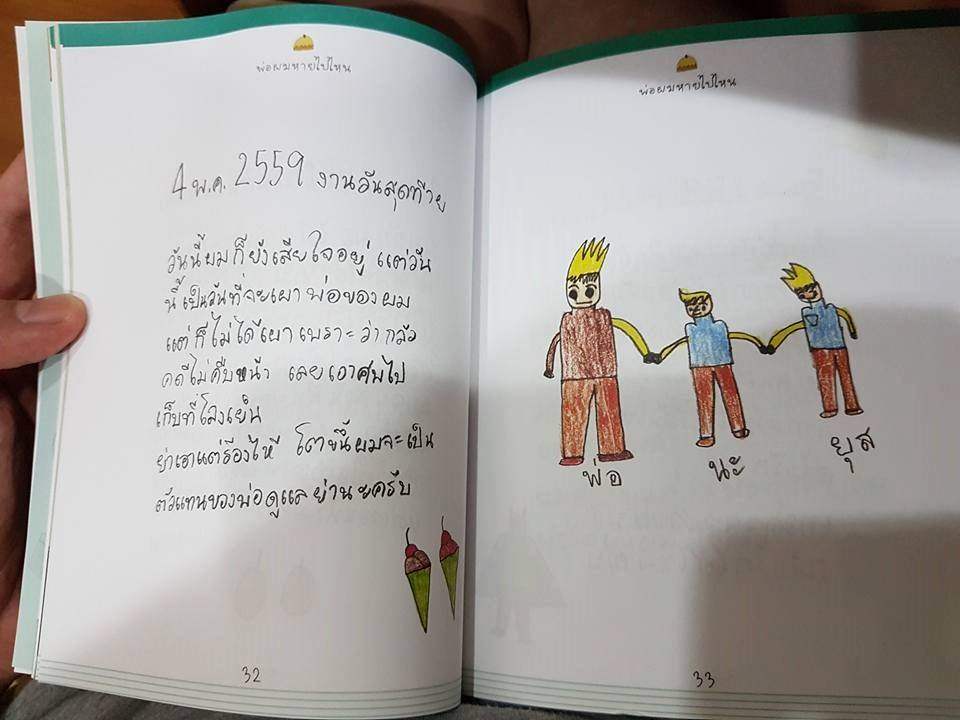 พ่อผมหายไปไหน
4 พ.ค. 2559 งานวันสุดท้าย
วันนี้ผมก็ยังเสียใจอยู่ แต่วัน
นี้เป็นวันที่จะเผาพ่อของผม
แต่ก็ไม่ได้เผาเพราะว่ากลัว
คดีไม่คืบหน้า เลยเอาศพไป
เก็บที่โลงเย็น
ย่าเอาแต่ร้องไห้ โตขึ้นผมจะเป็น
ตัวแทนของพ่อดูแลย่านะครับ
32
พ่อผมหายไปไหน
พ่อ
นะ
ยุส
33